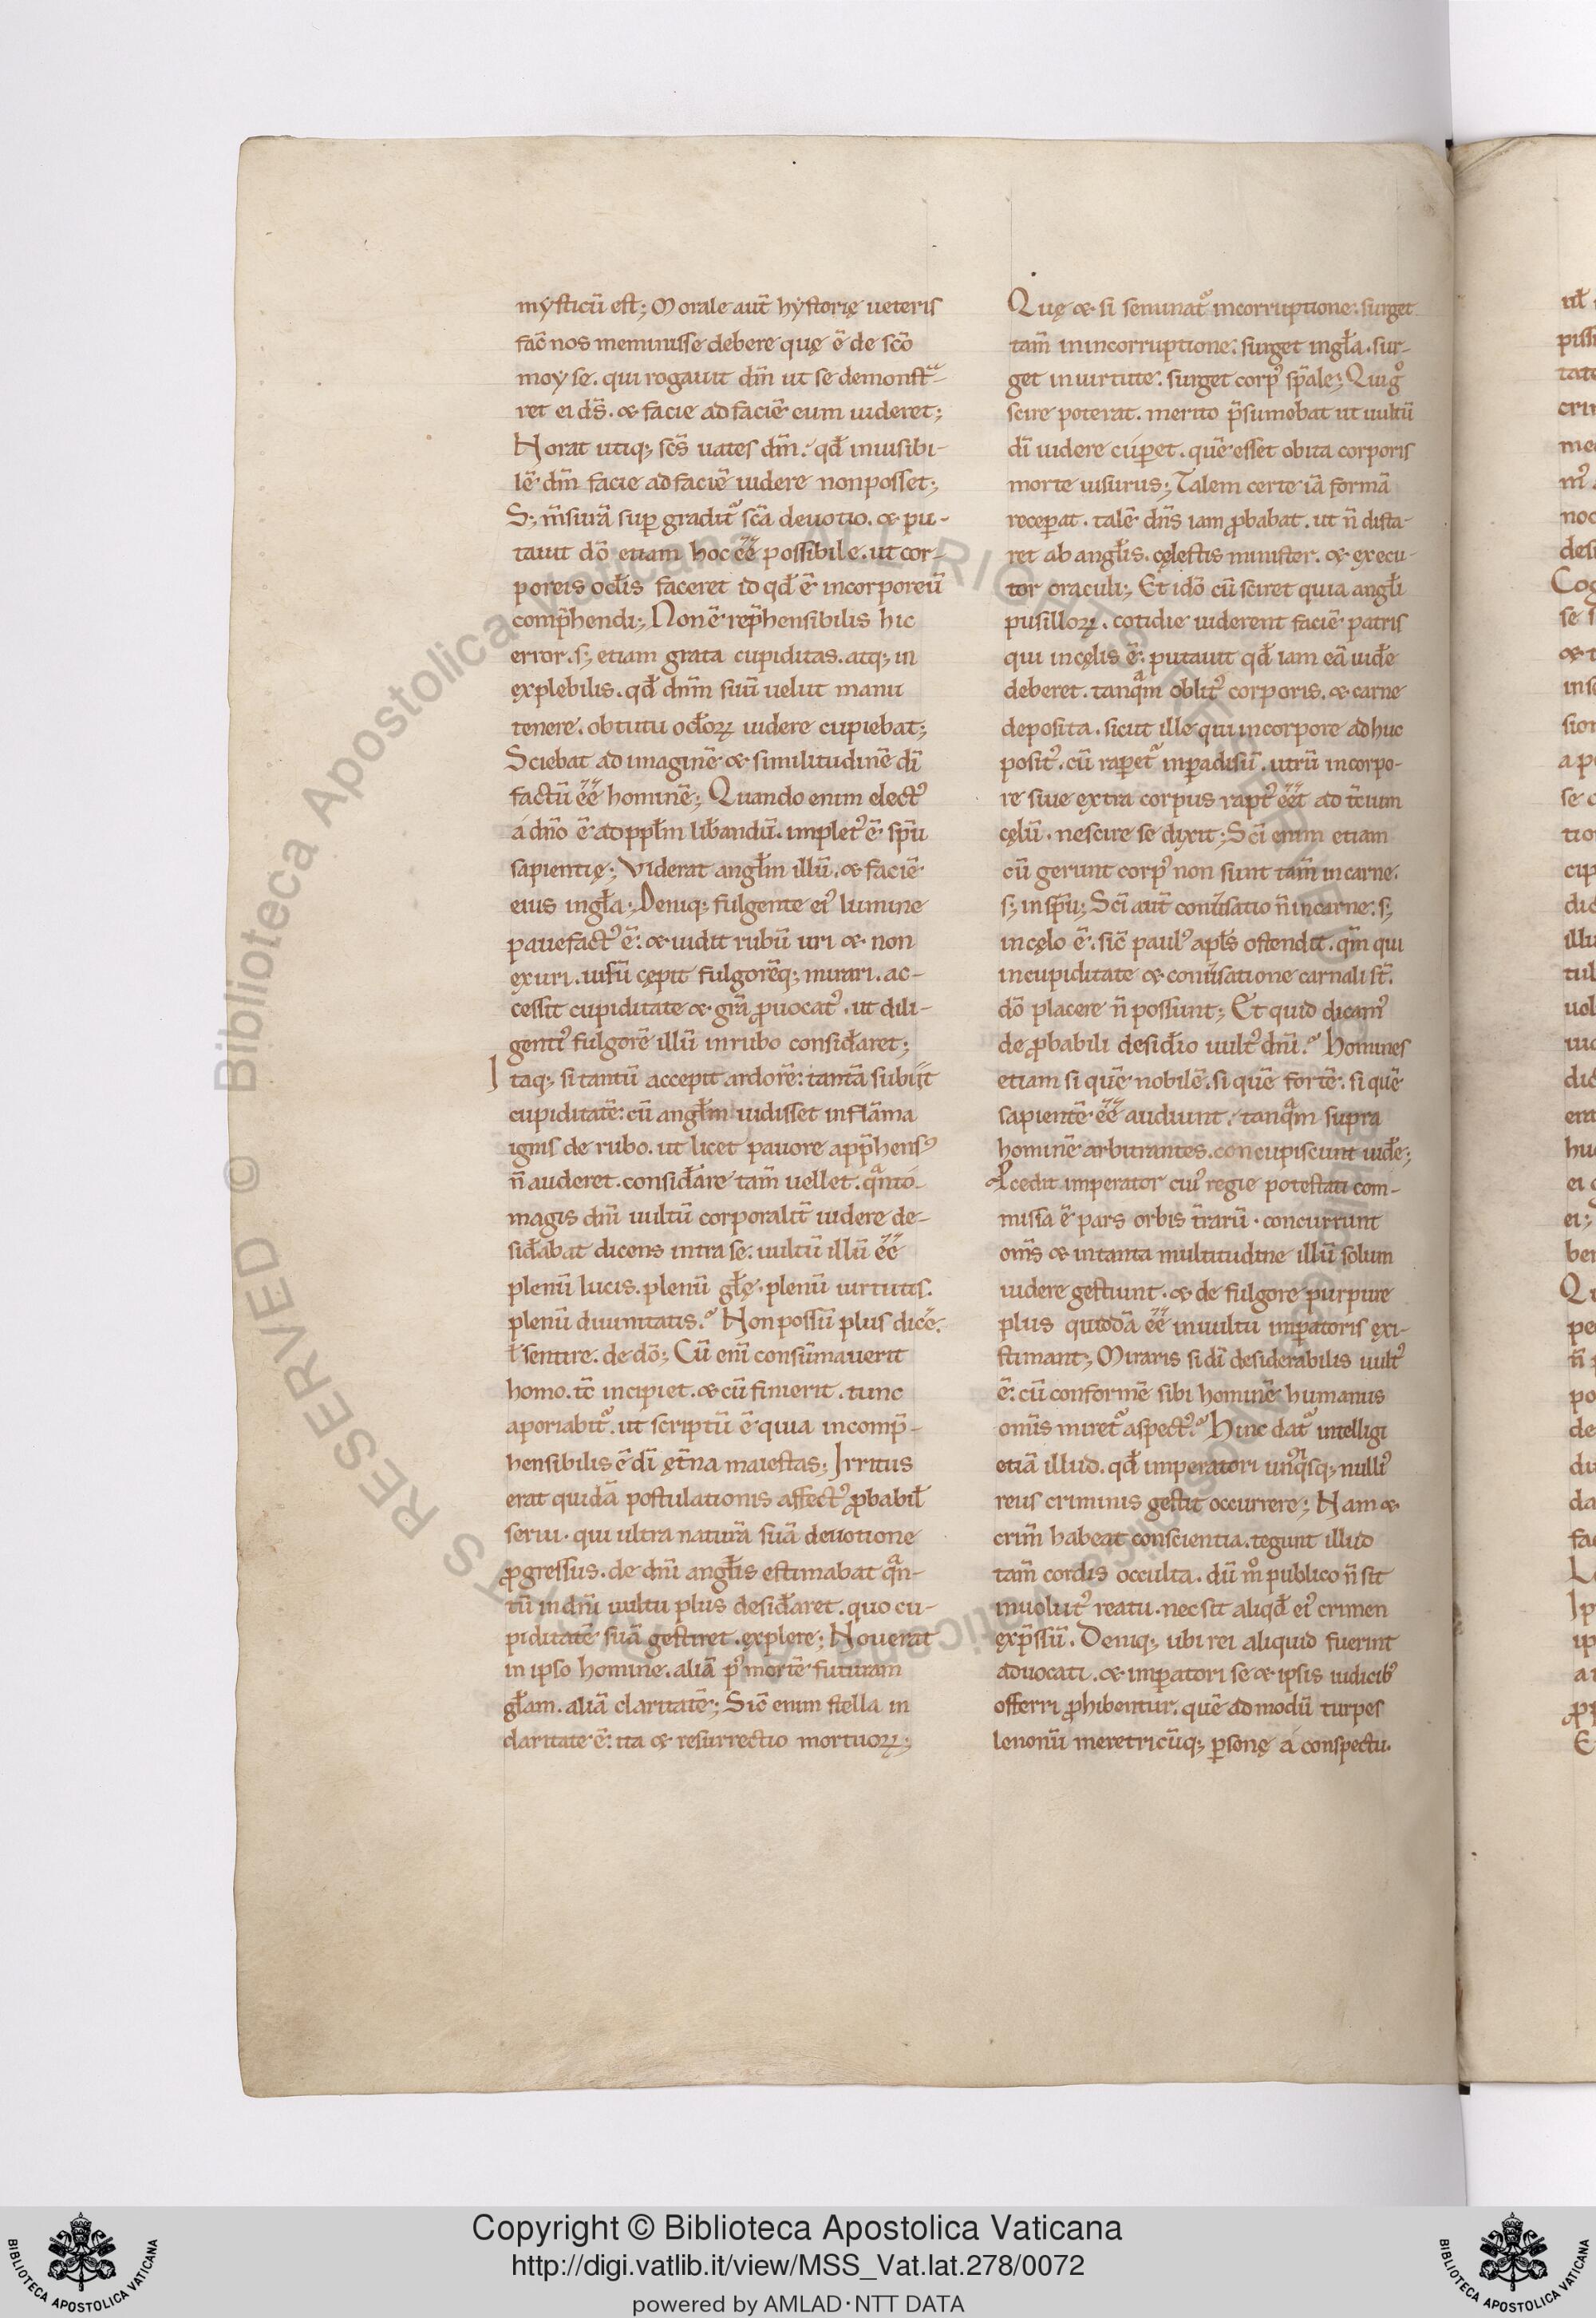 mẏsticū est; Morale aut̄ hẏstorię ueteris
fac̄ nos meminisse debere quę ē de sc̄o
moyse. qui rogauit dm̄ ut se demonstᵃ-
ret ei ds̄. & facie ad faciē eum uideret;
Norat utiq; sc̄s uates dm̄. qđ inuisibi-
lē dm̄ facie ad faciē uidere non posset;
S; m̄surā suꝑgradit᷑ sc̄a deuotio. & pu-
tauit dō etiam hoc ēē possibile. ut cor-
poreis ocłis faceret id qđ ē incorporeū
comp̄hendi; Non ē rep̄hensibilis hic
error. s; etiam grata cupiditas. atq; in
explebilis. qđ dnm̄ suū uelut manu
tenere. obtutu ocłoꝝ uidere cupiebat;
Sciebat ad imaginē & similitudinē dī
factū ēē hominē; Quando enim elect᾽
á dn̄o ē ad ppłm liƀandū. implet᾽ ē sp̄u
sapientię; Viderat angłm illū. & faciē
eius in gła; Deniq; fulgente ei᾽ lumine
pauefact᾽ ē. & uidit rubū uri & non
exuri. uisū cępit fulgorēq; mirari. ac-
cessit cupiditate & grā ꝓuocat᾽. ut dili-
gent᾽ fulgorē illū in rubo consiđaret;
Itaq; si tantū accepit ardorē. tantā subiit
cupiditatē. cū angłm uidisset in flāma
ignis de rubo. ut licet pauore app̄hens᾽
n̄ auderet. consiđare tam̄ uellet. qᵃnto
magis dnī uultū corporalit̄ uidere de-
siđabat dicens intra se. uultū illū ēē
plenū lucis. plenū głę. plenū uirtutis.
plenū diuinitatis. Non possū plus dicē.
ł sentire. de dō; Cū enī consūmauerit
homo. tc̄ incipiet. & cū finierit. tunc
aporiabit᷑. ut scriptū ē quia incomp̄-
hensibilis ē dī ęt̄na maiestas; Irritus
erat quidā postulationis affect᾽ ꝓbabił
serui. qui ultra naturā suā deuotione
ꝓgressus. de dnī angłis estimabat qᵃn-
tū in dnī uultu plus desiđaret. quo cu-
piditatē suā gestiret explere; Nouerat
in ipso homine. aliā p᾽ mortē futuram
głam. aliā claritatē; Sic̄ enim stella in
claritate ē. ita & resurrectio mortuoꝝ;
Quę & si seminat᷑ in corruptione. surget
tam̄ in incorruptione. surget in gła. sur-
get in uirtute. surget corp᾽ sp̄ale; Qui gͦ
scire poterat. merito p̄sumebat ut uultū
dī uidere cuꝑet. quē esset obita corporis
morte uisurus; Talem certe iā formā
receꝑat. talē dn̄s iam ꝓbabat. ut n̄ dista-
ret ab angłis. cęlestis minister. & execu-
tor oraculi; Et idō cū sciret quia angłi
pusilloꝝ. cotidie uiderent faciē patris
qui in cęlis ē. putauit qđ iam eā uiđe
deberet. tanqᵃm oblit᾽ corporis. & carne
deposita. sicut ille qui in corpore adhuc
posit᾽. cū rapet᷑ in ꝑadisū. utrū in corpo-
re siue extra corpus rapt᾽ ēēt ad t̄cium
cęlū. nescire se dixit; Sc̄i enim etiam
cū gerunt corp᾽ non sunt tam̄ in carne.
s; in sp̄u; Sc̄i aut̄ conūsatio n̄ in carne. s;
in cęlo ē. sic̄ paul᾽ apłs ostendit. qm̄ qui
in cupiditate & conūsatione carnali st̄.
dō placere n̄ possunt; Et quid dicam᾽
de ꝓbabili desiđio uult᾽ dnī. Homines
etiam si quē nobilē. si quē fortē. si quē
sapientē ēē audiunt. tanqᵃm supra
hominē arbitrantes. concupiscunt uiđe;
Ꝓcedit imperator cui᾽ regie potestati com-
missa ē pars orbis t̄rarū. concurrunt
oms̄ & in tanta multitudine illū solum
uidere gestiunt. & de fulgore purpure
plus quiddā ēē in uultu imꝑatoris exi-
stimant; Miraris si dī desiderabilis uult᾽
ē. cū conformē sibi hominē humanus
omīs miret᷑ aspect᾽. Hinc dat᷑ intelligi
etiā illud. qđ imperatori un᾽qⁱsq; nulli᾽
reus criminis gestit occurrere; Nam &
crim̄ habeat conscientia. tegunt illud
tam̄ cordis occulta. dū mͦ publico n̄ sit
inuolut᾽ reatu. nec sit aliqđ ei᾽ crimen
exp̄ssū. Deniq; ubi rei aliquid fuerint
aduocati. & imꝑatori se & ipsis iudicib᾽
offerri ꝓhibentur. quē ad modū turpes
lenonū meretricūq; ꝑsonę á conspectu.
Copyright © Biblioteca Apostolica Vaticana
http://digi.vatlib.it/view/MSS_Vat.lat.278/0072
powered by AMLAD·NTT DATA